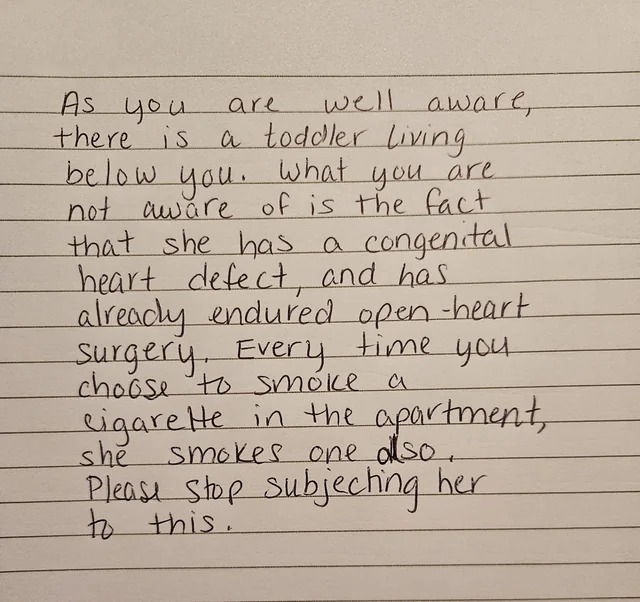 As you are well aware,
there is a toddler living
below you. What you are
not aware of is the fact
that she has a congenital
heart defect, and has
already endured open-heart
surgery. Every time you
choose to smoke a
cigarette in the apartment,
she smokes one also.
Please stop subjecting her
to this.